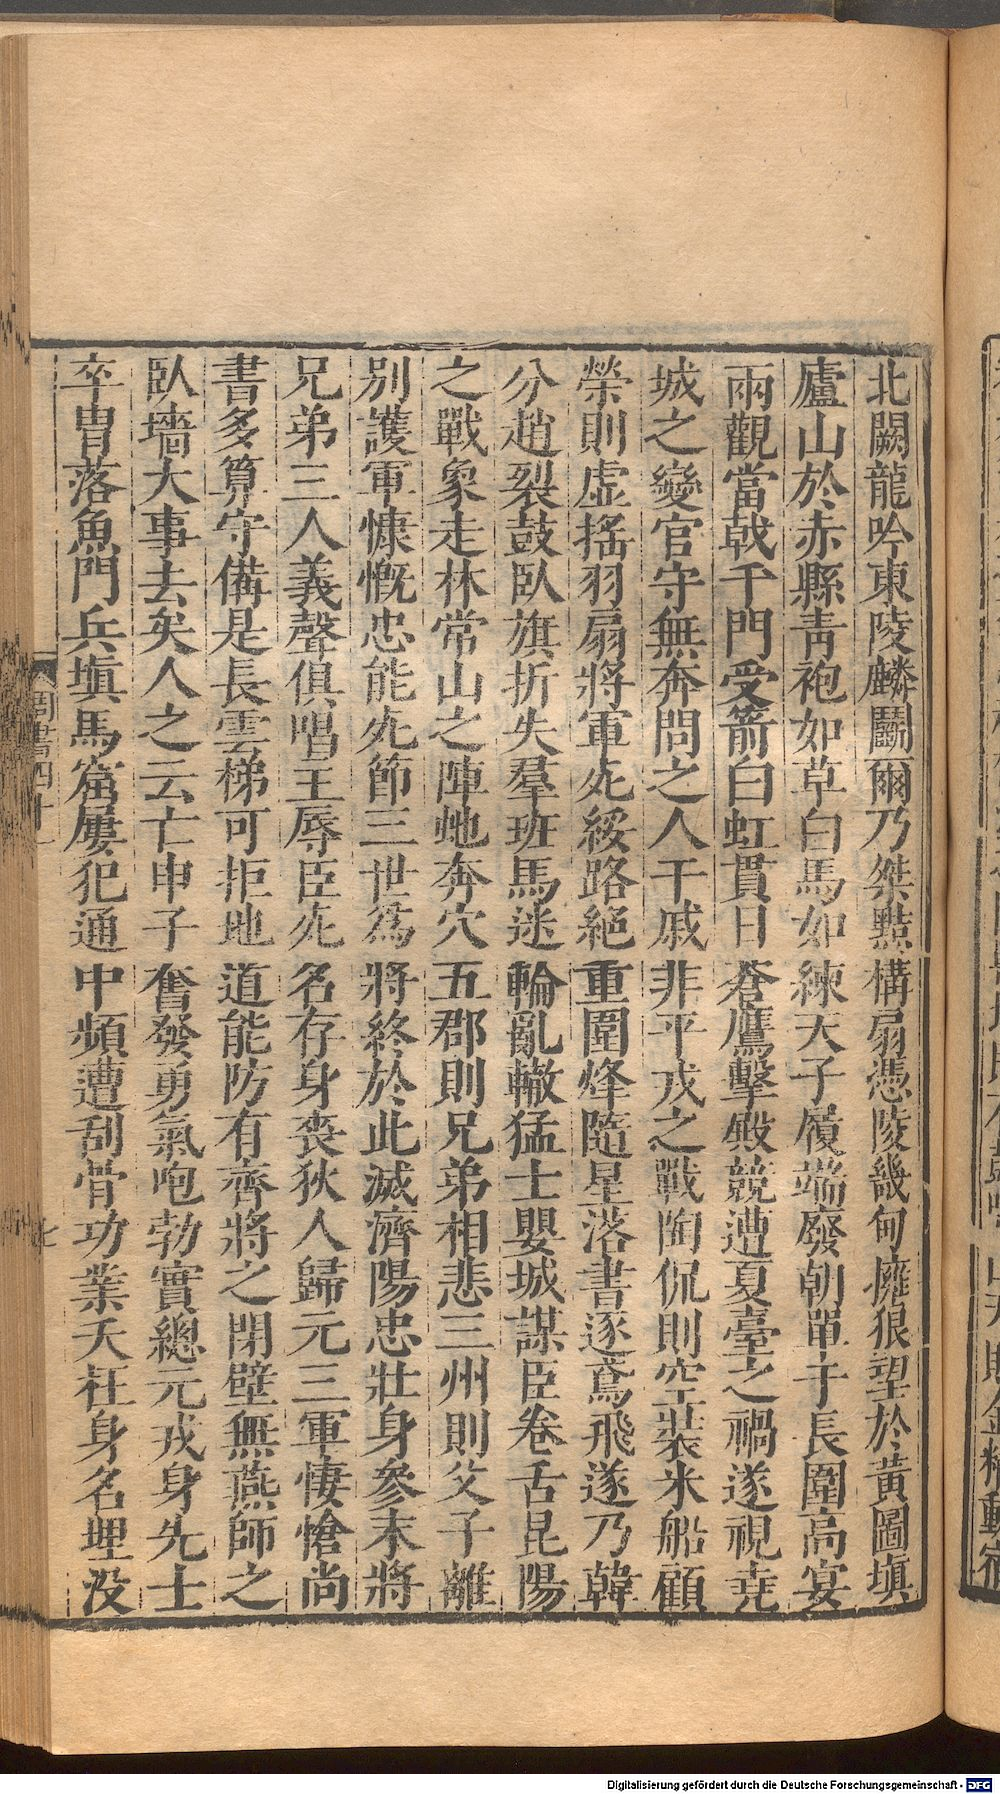 北闕龍吟東陵麟鬬爾乃桀黠構扇憑陵畿甸擁狼望於黃圖塡
廬山於赤縣靑袍如草白馬如練天子履端廢朝單于長圍高宴
兩觀當戟千門受箭白虹貫日蒼鷹擊殿競遭夏臺之禍遂視堯
城之變官守無奔問之人干戚非平戎之戰陶侃則空裝米船顧
榮則虛搖羽扇將軍死綏路絕重圍烽隨星落書逐鳶飛遂乃韓
分趙裂鼓臥旗折失羣班馬迷輪亂轍猛士嬰城謀臣卷舌昆陽
之戰象走林常山之陣虵奔穴五郡則兄弟相悲三州則父子離
別護軍慷慨忠能死節三世爲將終於此滅濟陽忠壯身參末將
兄弟三人義聲俱唱主辱臣死名存身喪狄人歸元三軍悽愴尚
書多算守備是長雲梯可拒地道能防有齊將之閉壁無燕師之
臥墻大事去矣人之云亡申子奮發勇氣咆勃實總元戎身先士
卒胄落魚門兵塡馬窟屢犯通中頻遭刮骨功業夭枉身名埋没
周書四十一
七
Digitalisierung gefördert durch die Deutsche Forschungsgemeinschaft - DFG